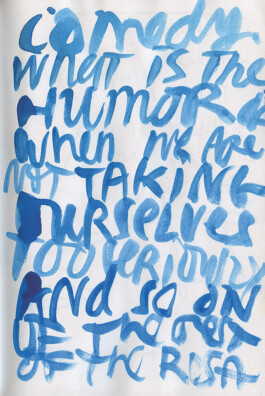 COMEDY
WHAT IS THE
HUMOR
WHEN WE ARE
NOT TAKING
OURSELVES
TOO SERIOUSLY
AND SO ON
OF THE
OF THE